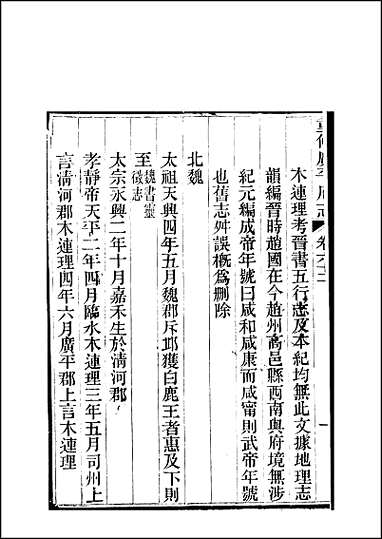 重修廣平府志 卷三十三
木連理考晉書五行志及本紀均無此文據地理志
韻編晉時趙國在今趙州高邑縣西南與府境無涉
紀元編成帝年號曰咸和咸康而咸甯則武帝年號
也舊志舛誤概爲刪除
北魏
太祖天興四年五月魏郡斥邱獲白鹿王者惠及下則
至魏書靈徵志
太宗永興二年十月嘉禾生於淸河郡
孝靜帝天平二年四月臨水木連理三年五月司州上
言淸河郡木連理四年六月廣平郡上言木連理